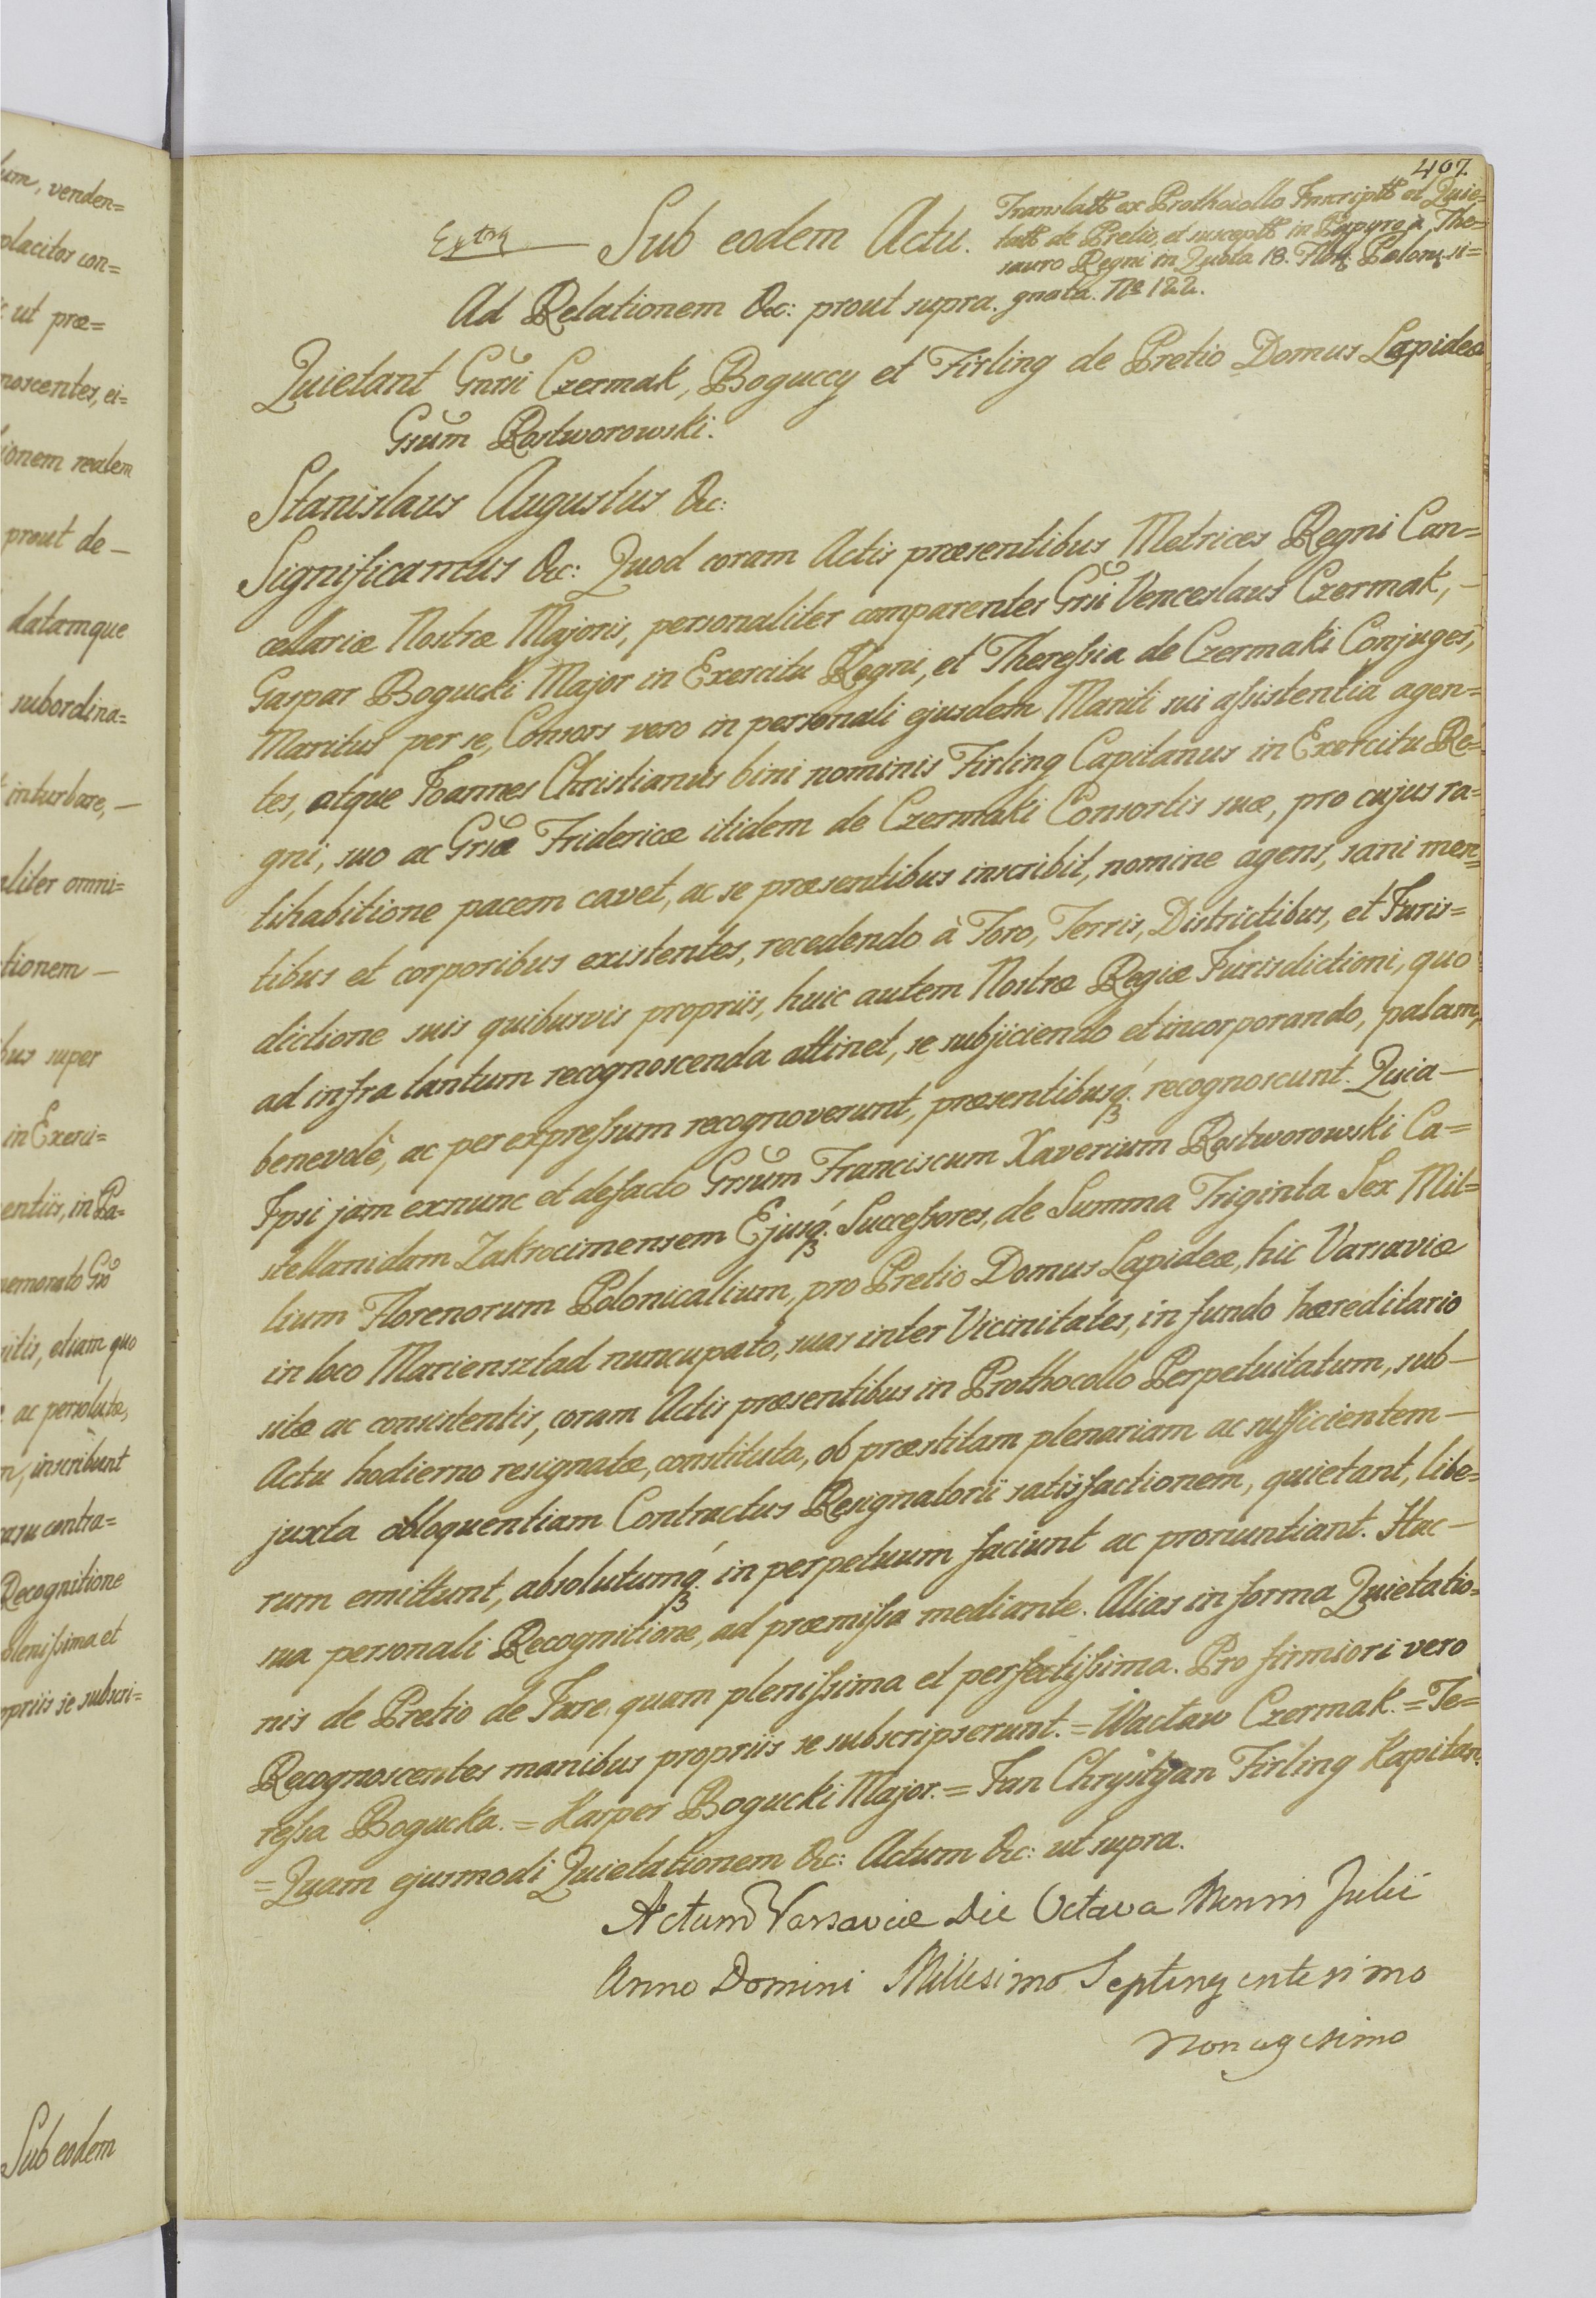 um, venden=
placitos con=
ut præ=
noscentes, ei=
ionem realem
prout de –
datamque
subordina=
inturbare, –
aliter omni=
tionem –
bus super
in Exerci=
entiis, in Pa=
memorato Gso
nitis, etiam quo
ac persolutæ,
inscribunt
casu contra=
Recognitione
plenissima et
opriis se subscri=
Sub eodem
407.
Extr
Sub eodem Actu.
Translatt ex Prothocollo Inscriptt et Quie=
tatt de Pretio, et susceptt in Papyro à The=
sauro Regni in Quota 18. Flor: Polon: si=
gnata. No 122.
Ad Relationem &c: prout supra.
Quietant Gnrsi Czermak, Boguccy et Firling de Pretio Domus Lapideæ
Gsum Rostworowski.
Stanislaus Augustus &c:
Significamus &c: Quod coram Actis præsentibus Metrices Regni Can=
cellariæ Nostræ Majoris, personaliter comparentes Grsi Venceslaus Czermak, –
Gaspar Bogucki Major in Exercitu Regni, et Theressia de Czermaki Conjuges,
Maritus per se, Consors vero in personali ejusdem Mariti sui assistentia agen=
tes, atque Joannes Christianus bini nominis Firling Capitanus in Exercitu Re=
gni, suo ac Grsæ Fridericæ itidem de Czermaki Consortis suæ, pro cujus ra=
tihabitione pacem cavet, ac se præsentibus inscribit, nomine agens, sani men=
tibus et corporibus existentes, recedendo à Foro, Terris, Districtibus, et Juris=
dictione suis quibusvis propriis, huic autem Nostræ Regiæ Jurisdictioni, quo
ad infra tantum recognoscenda attinet, se subjiciendo et incorporando, palam,
benevolè, ac per expressum recognoverunt, præsentibusq; recognoscunt. Quia –
Ipsi jam exnunc et defacto Grsum Franciscum Xaverium Rostworowski Ca=
stellanidam Zakrocimensem Ejusq; Successores, de Summa Triginta Sex Mil=
lium Florenorum Polonicalium, pro Pretio Domus Lapideæ, hic Varsaviæ
in loco Mariensztad nuncupato, suas inter Vicinitates, in fundo hæreditario
sitæ ac consistentis, coram Actis præsentibus in Prothocollo Perpetuitatum, sub –
Actu hodierno resignatæ, constituta, ob præstitam plenariam ac sufficientem –
juxta obloquentiam Contractus Resignatorii satisfactionem, quietant, libe=
rum emittunt, absolutumq; in perpetuum faciunt ac pronuntiant. Hac –
sua personali Recognitione, ad præmissa mediante. Alias in forma Quietatio=
nis de Pretio de Jure quam plenissima et perfectissima. Pro firmiori vero
Recognoscentes manibus propriis se subscripserunt. = Wacław Czermak. = Te=
ressa Bogucka. = Kasper Bogucki Major. = Jan Chrystyan Firling Kapitan.
= Quam ejusmodi Quietationem &c: Actum &c: ut supra.
Actum Varsaviæ Die Octava Mensis Julii
Anno Domini Millesimo Septingentesimo
nonagesimo